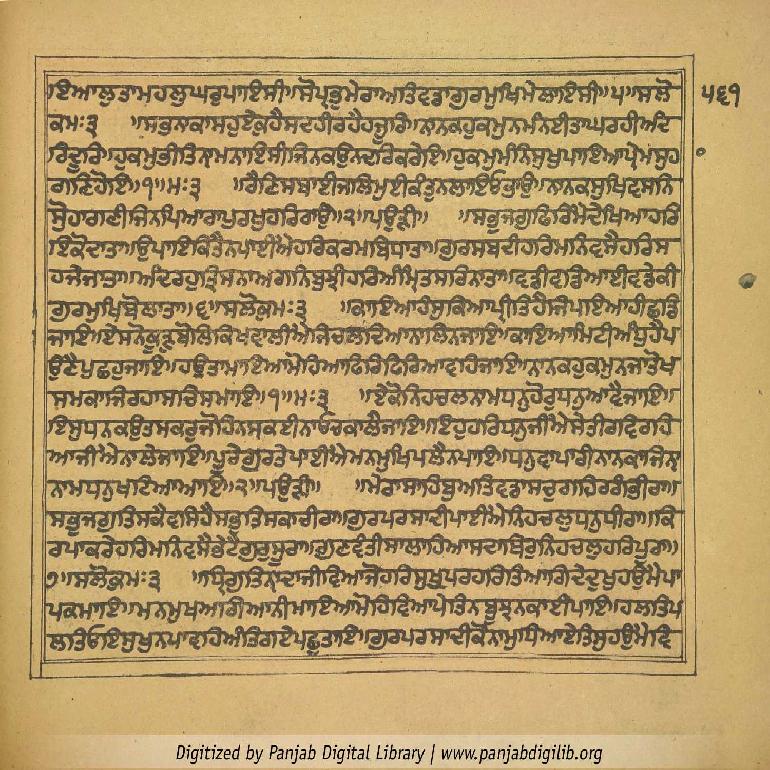 ਇਆਲੁਤਾਮਹਲੁਘਰੁਪਾਇਸੀ॥ਸੋਪ੍ਰਭੁਮੇਰਾਅਤਿਵਡਾਗੁਰਮੁਖਿਮੇਲਾਇਸੀ॥੫॥ਸਲੋ
੫੬੧
ਕਮਃ੩ ॥ਸਭਨਕਾਸਹੁਏਕੁਹੈਸਦਹੀਰਹੈਹਜੂਰਿ॥ਨਾਨਕਹੁਕਮੁਨਮੰਨਈਤਾਘਰਹੀਅੰਦਿ
ਰਿਦੂਰਿ॥ਹੁਕਮੁਭੀਤਿਨਾਮਨਾਇਸੀਜਿਨਕਉਨਦਰਿਕਰੇਇ॥ਹੁਕਮੁਮੰਨਿਸੁਖੁਪਾਇਆਪ੍ਰੇਮਸੁਹ
ਗਾਣਿਹੋਇ॥੧॥ਮਃ੩ ॥ਰੈਣਿਸਬਾਈਜਲਿਮੁਈਕੰਤਨਲਾਇਓਭਾਉ॥ਨਾਨਕਸੁਖਿਵਸਨਿ
ਸੋੁਹਾਗਣੀਜਿਨਪਿਆਰਾਪੁਰਖੁਹਰਿਰਾਉ॥੨॥ਪਉੜੀ॥ ॥ਸਭੁਜਗੁਫਿਰਿਮੈਦੇਖਿਆਹਰਿ
ਇਕੋਦਾਤਾ॥ਉਪਾਇਕਿਤੈਨਪਾਈਐਹਰਿਕਰਮਬਿਧਾਤਾ॥ਗੁਰਸਬਦੀਹਰਿਮਨਿਵਸੈਹਰਿਸ
ਹਜੇਜਾਤਾ॥ਅੰਦਰਹੁਤ੍ਰਿਸਨਾਅਗਨਿਬੁਝੀਹਰਿਅੰਮ੍ਰਿਤਸਰਿਨਾਤਾ॥ਵਡੀਵਡਿਆਈਵਡੇਕੀ
ਗੁਰਮੁਖਿਬੋਲਾਤਾ॥੬॥ਸਲੋਕੁਮਃ੩ ॥ਕਾਇਆਹੰਸਕਿਆਪ੍ਰੀਤਿਹੈਜਿਪਇਆਹੀਛਡਿ
ਜਾਇ॥ਏਸਨੋਕੂੜੁਬੋਲਿਕਿਖਵਾਲੀਐਜਿਚਲਦਿਆਨਾਲਿਨਜਾਇ॥ਕਾਇਆਮਿਟੀਅੰਧੁਹੈਪ
ਉਣੈਪੁਛਹੁਜਾਇ॥ਹਉਤਾਮਾਇਆਮੋਹਿਆਫਿਰਿਫਿਰਿਆਵਾਹਿਜਾਇ॥ਨਾਨਕਹੁਕਮੁਨਜਾਤੋਖ
ਸਮਕਾਜਿਰਹਾਸਚਿਸਮਾਇ॥੧॥ਮਃ੩ ॥ਏਕੋਨਿਹਚਲਨਾਮਧਨੁਹੋਰੁਧਨੁਆਵੈਜਾਇ॥
ਇਸੁਧਨਕਉਤਸਕਰੁਜੋਹਿਨਸਕਈਨਾਓਚਕਾਲੈਜਾਇ॥ਇਹੁਹਰਿਧਨੁਜੀਐਸੇਤੀਰਵਿਰਹਿ
ਆਜੀਐਨਾਲੇਜਾਇ॥ਪੂਰੇਗੁਰਤੇਪਾਈਐਮਨਮੁਖਿਪਲੈਨਪਾਇ॥ਧਨੁਵਾਪਾਰੀਨਾਨਕਾਜਿਨਾ
ਨਾਮਧਨੁਖਟਿਆਆਇ॥੨॥ਪਉੜੀ॥ ॥ਮੇਰਾਸਾਹਿਬੁਅਤਿਵਡਾਸਚੁਗਹਿਰਗੰਭੀਰਾ॥
ਸਭੁਜਗੁਤਿਸਕੈਵਸਿਹੈਸਭੁਤਿਸਕਾਚੀਰਾ॥ਗੁਰਪਰਸਾਦੀਪਾਈਐਨਿਹਚਲੁਧਨੁਧੀਰਾ॥ਕਿ
ਰਪਾਕਰੇਹਰਿਮਨਿਵਸੈਭੇਟੈਗੁਰੁਸੂਰਾ॥ਗੁਣਵੰਤੀਸਾਲਾਹਿਆਸਦਾਥਿਰੁਨਿਹਚਲੁਹਰਿਪੂਰਾ॥
੭॥ਸਲੋਕੁਮਃ੩ ॥ਧ੍ਰਿਗੁਤਿਨਾਦਾਜੀਵਿਆਜੋਹਰਿਸੁਖੁਪਰਹਰਿਤਿਆਗਦੇਦੁਖੁਹਉਮੈਪਾ
ਪਕਮਾਇ॥ਮਨਮੁਖਅਗਿਆਨੀਮਾਇਆਮੋਹਿਵਿਆਪੇਤਿਨਬੂਝਨਕਾਈਪਾਇ॥ਹਲਤਿਪ
ਲਤਿਓਇਸੁਖੁਨਪਾਵਹਿਅੰਤਿਗਏਪਛੁਤਾਇ॥ਗੁਰਪਰਸਾਦੀਕੋਨਾਮੁਧਿਆਏਤਿਸੁਹਉਮੈਵਿ
Digitized by Panjab Digital Library | www.panjabdigilib.org